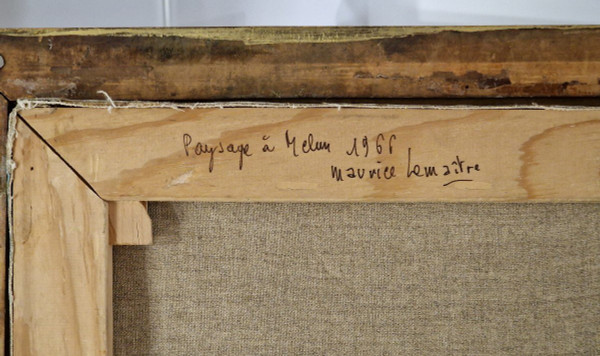 Paysage à Melun 1966
maurice Lemaître